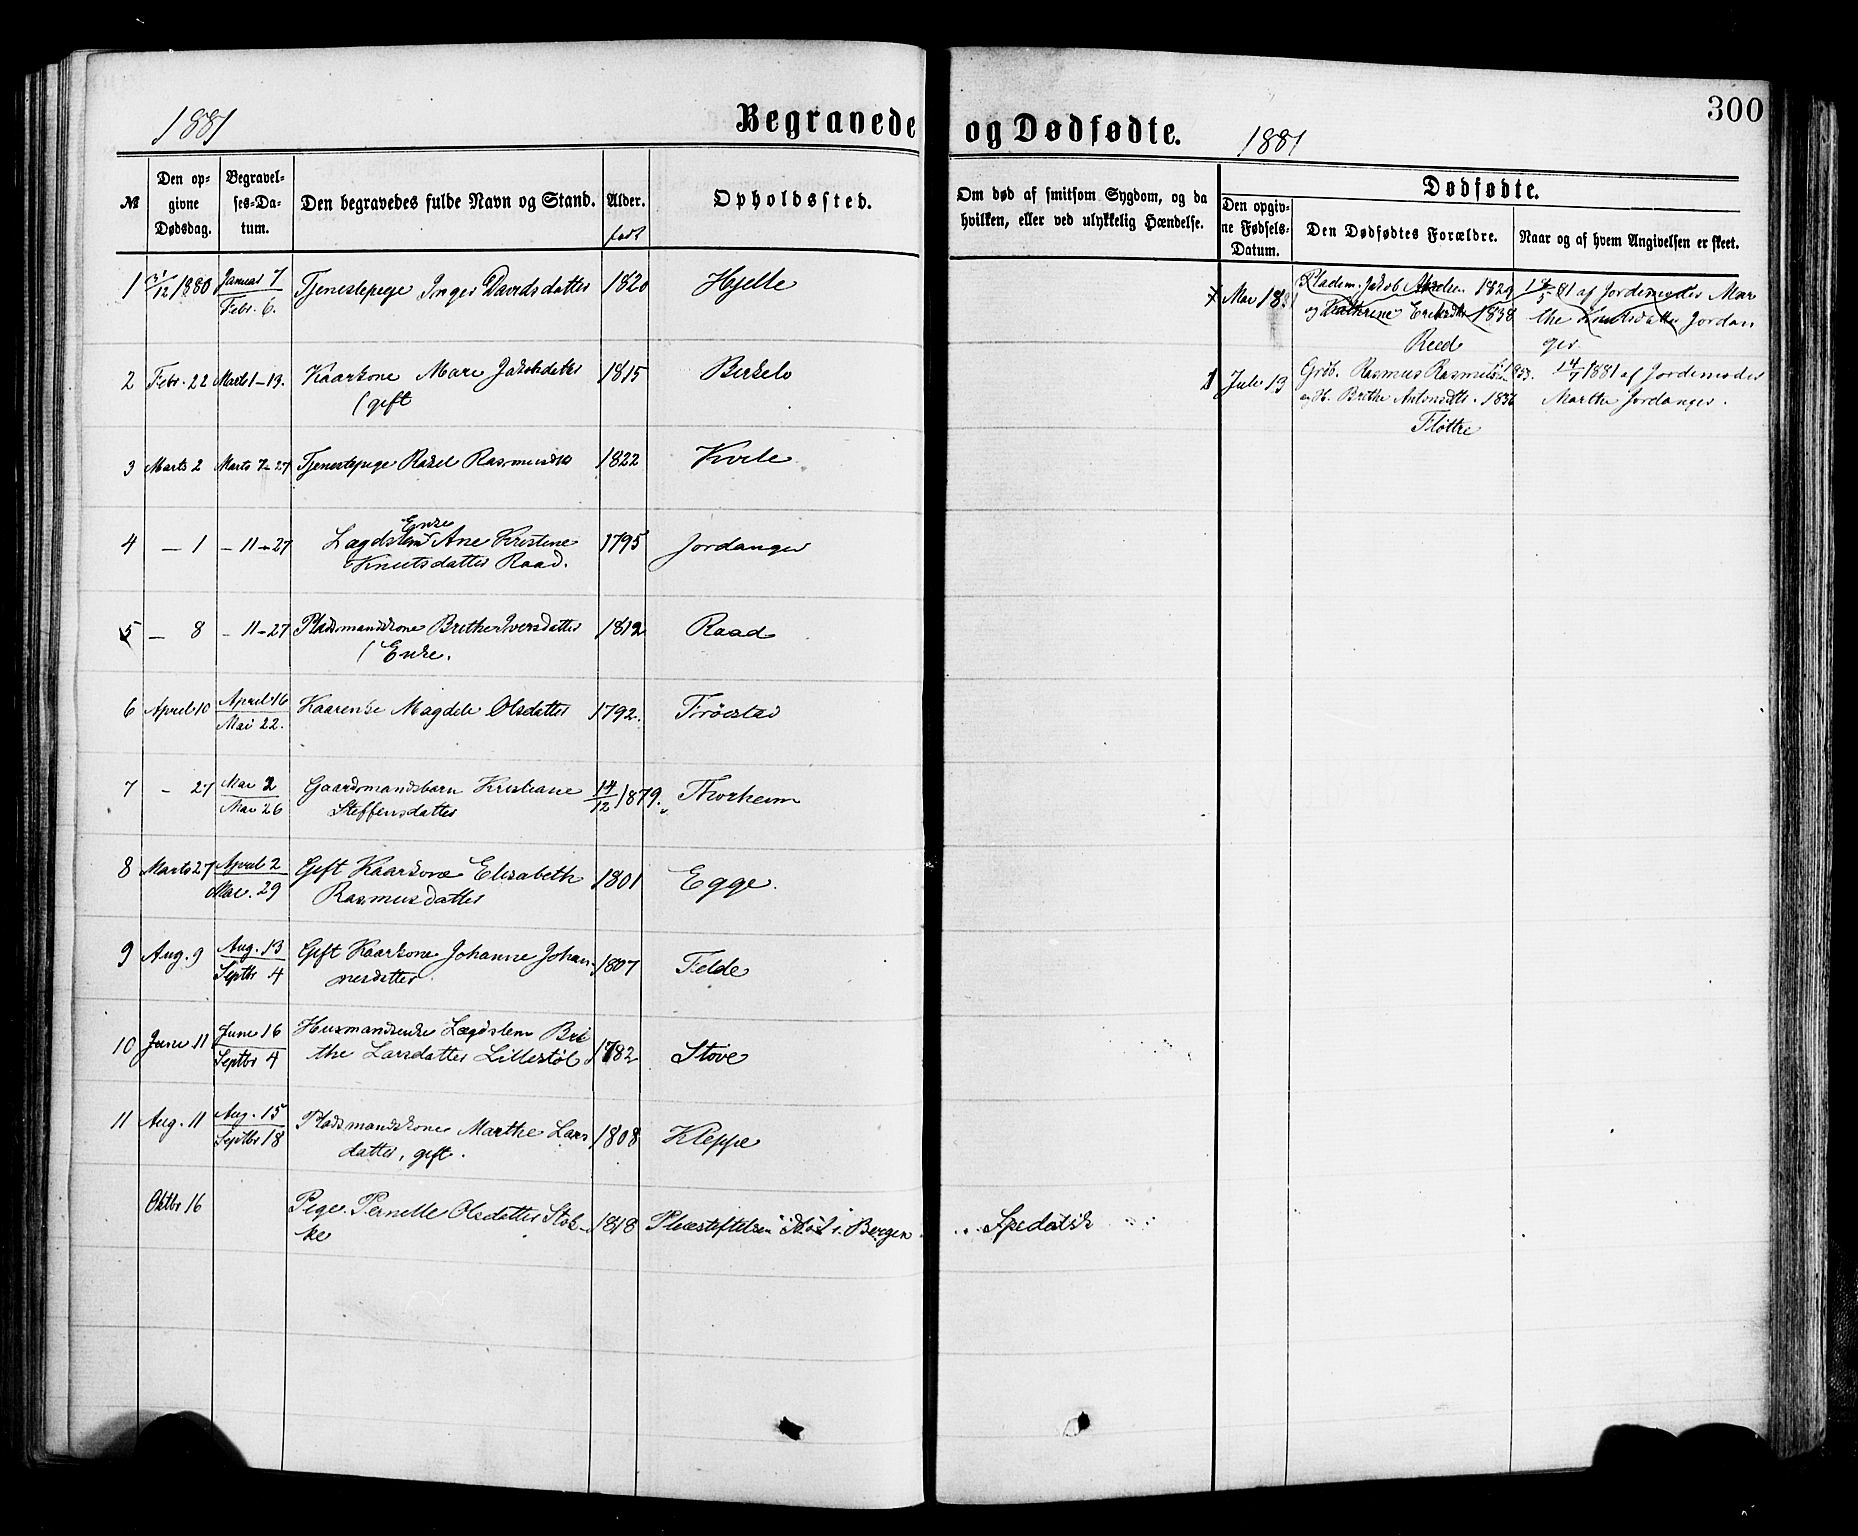 1881
Begravede og Dødfødte.
1881
300
№
Den opgivne Dødsdag.
Begravelses-Datum.
Den begravedes fulde Navn og Stand.
Alder.
født
Opholdssted.
Om død af smitsom Sygdom, og da
hvilken, eller ved ulykkelig Hændelse.
Dødfødte.
Den opgivne Fødsels-Datum.
Den Dødfødtes Forældre.
Naar og af hvem Angivelsen er skeet.
1 31/12 1880 Januar 7 / Febr. 6. Tjenestepige Inger Davidsdatter 1820 Hjelle
2 Febr. 22 Marts 1–19. Kaarkone Mari Jakobsdatter 1815 Birkelo
(gift
3 Marts 2 Marts 7–27 Tjenestepige Rakel Rasmusdtr 1822 Kvile
4 — 1 – 11–27 Lægdslem Enke Ane Kristine 1795 Jordanger
Knutsdatter Raad.
5 — 8 – 11–27 Pladsmandskone Brithe Iversdatter 1812 Raad
(Enke.
6 April 10 April 16 / Mai 22. Kaarenke Magdeli Olsdatter 1792.
7 – 27 Mai 2 / Mai 26 Gaardmandsbarn Kristiane 14/12 1879. Thorheim
Steffensdatter
8 Marts 27 April 2 / Mai. 29 Gift Kaarkone Elisabeth 1801 Egge.
Rasmusdatter
9 Aug. 9 Aug. 13 / Septbr 4 Gift Kaarkone Johanne Johan- 1807 Felde
nesdatter
10 Juni 11 Juni 16 / Septbr 4 Husmandsenke Lægdslem Bri
the Larsdatter Lillestøl 1782 Stove
11 Aug. 11 Aug. 15 / Septbr 18 Pladsmandskone Marthe Lars 1808 Kleppe
datter, gift.
Oktbr 16 Pige Pernille Olsdatter 1818 Pleiestiftelsen i Bergen Spedalsk
Mai 18 Pladsm. Jakob 1829 af Jordemoder Mar
og Kathrine 1838 the Knutsdatter Jordan
Reed ger.
1 Juli 13 Grdb. Rasmus Rasmussen 14/7 1881 af Jordemoder
og H. Brithe Antonsdtr. Marthe Jordanger.
Fløttre